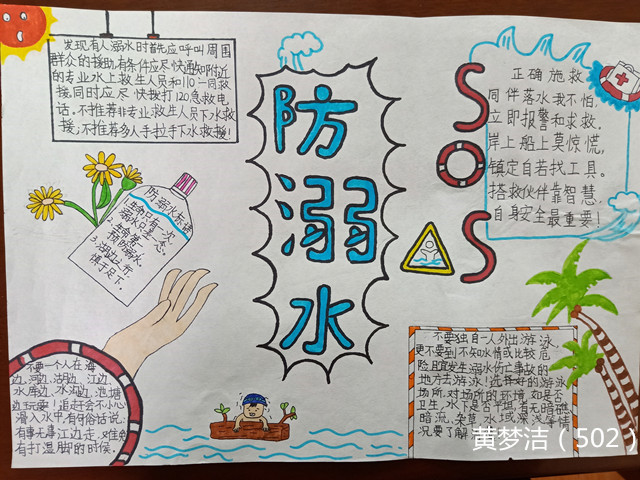 发现有人溺水时首先应呼叫周围
群众的援助,有条件应尽快通知附近
的专业水上救生人员和110一同救
援,同时应尽快拨打120急救电
话。不推荐非专业救生人员下水救
援;不推荐多人手拉手下水救援!
防
溺
水
SOS
正确施救
同伴落水我不怕,
立即报警和求救。
岸上船上莫惊慌,
镇定自若找工具。
搭救伙伴靠智慧,
自身安全最重要!
防溺水标语
生命只有一次,
溺水只差一念。
预防溺水,
慎于足下。
不要一个人在海
边、河边、湖边、江边、
水库边、水沟边、池塘
边玩耍!追赶会不小心
滑入水中,有句俗话说:
有事无事江边走,难免
有打湿脚的时候。
不要独自一人外出游泳,
更不要到不知水情或比较危
险且易发生溺水伤亡事故的
地方去游泳!选择好的游泳
场所,对场所的环境,如是否
卫生,水下是否平坦,有无暗礁、
暗流、杂草,水域深浅等情
况要了解
黄梦洁(502)